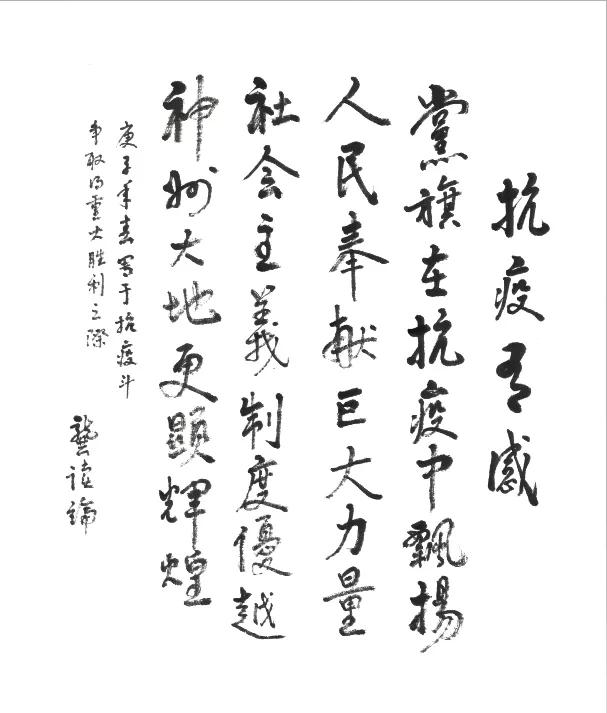 抗疫有感
黨旗在抗疫中飄揚
人民奉献巨大力量
社会主義制度優越
神州大地更顯輝煌
庚子年春寫于抗疫斗
争取得重大胜利之際
龔读論